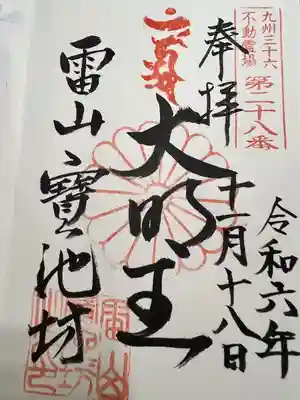 九州三十六
不動霊場
第二十八番
奉拝
令和六年
十一月十八日
大明王
雷山
寶池坊